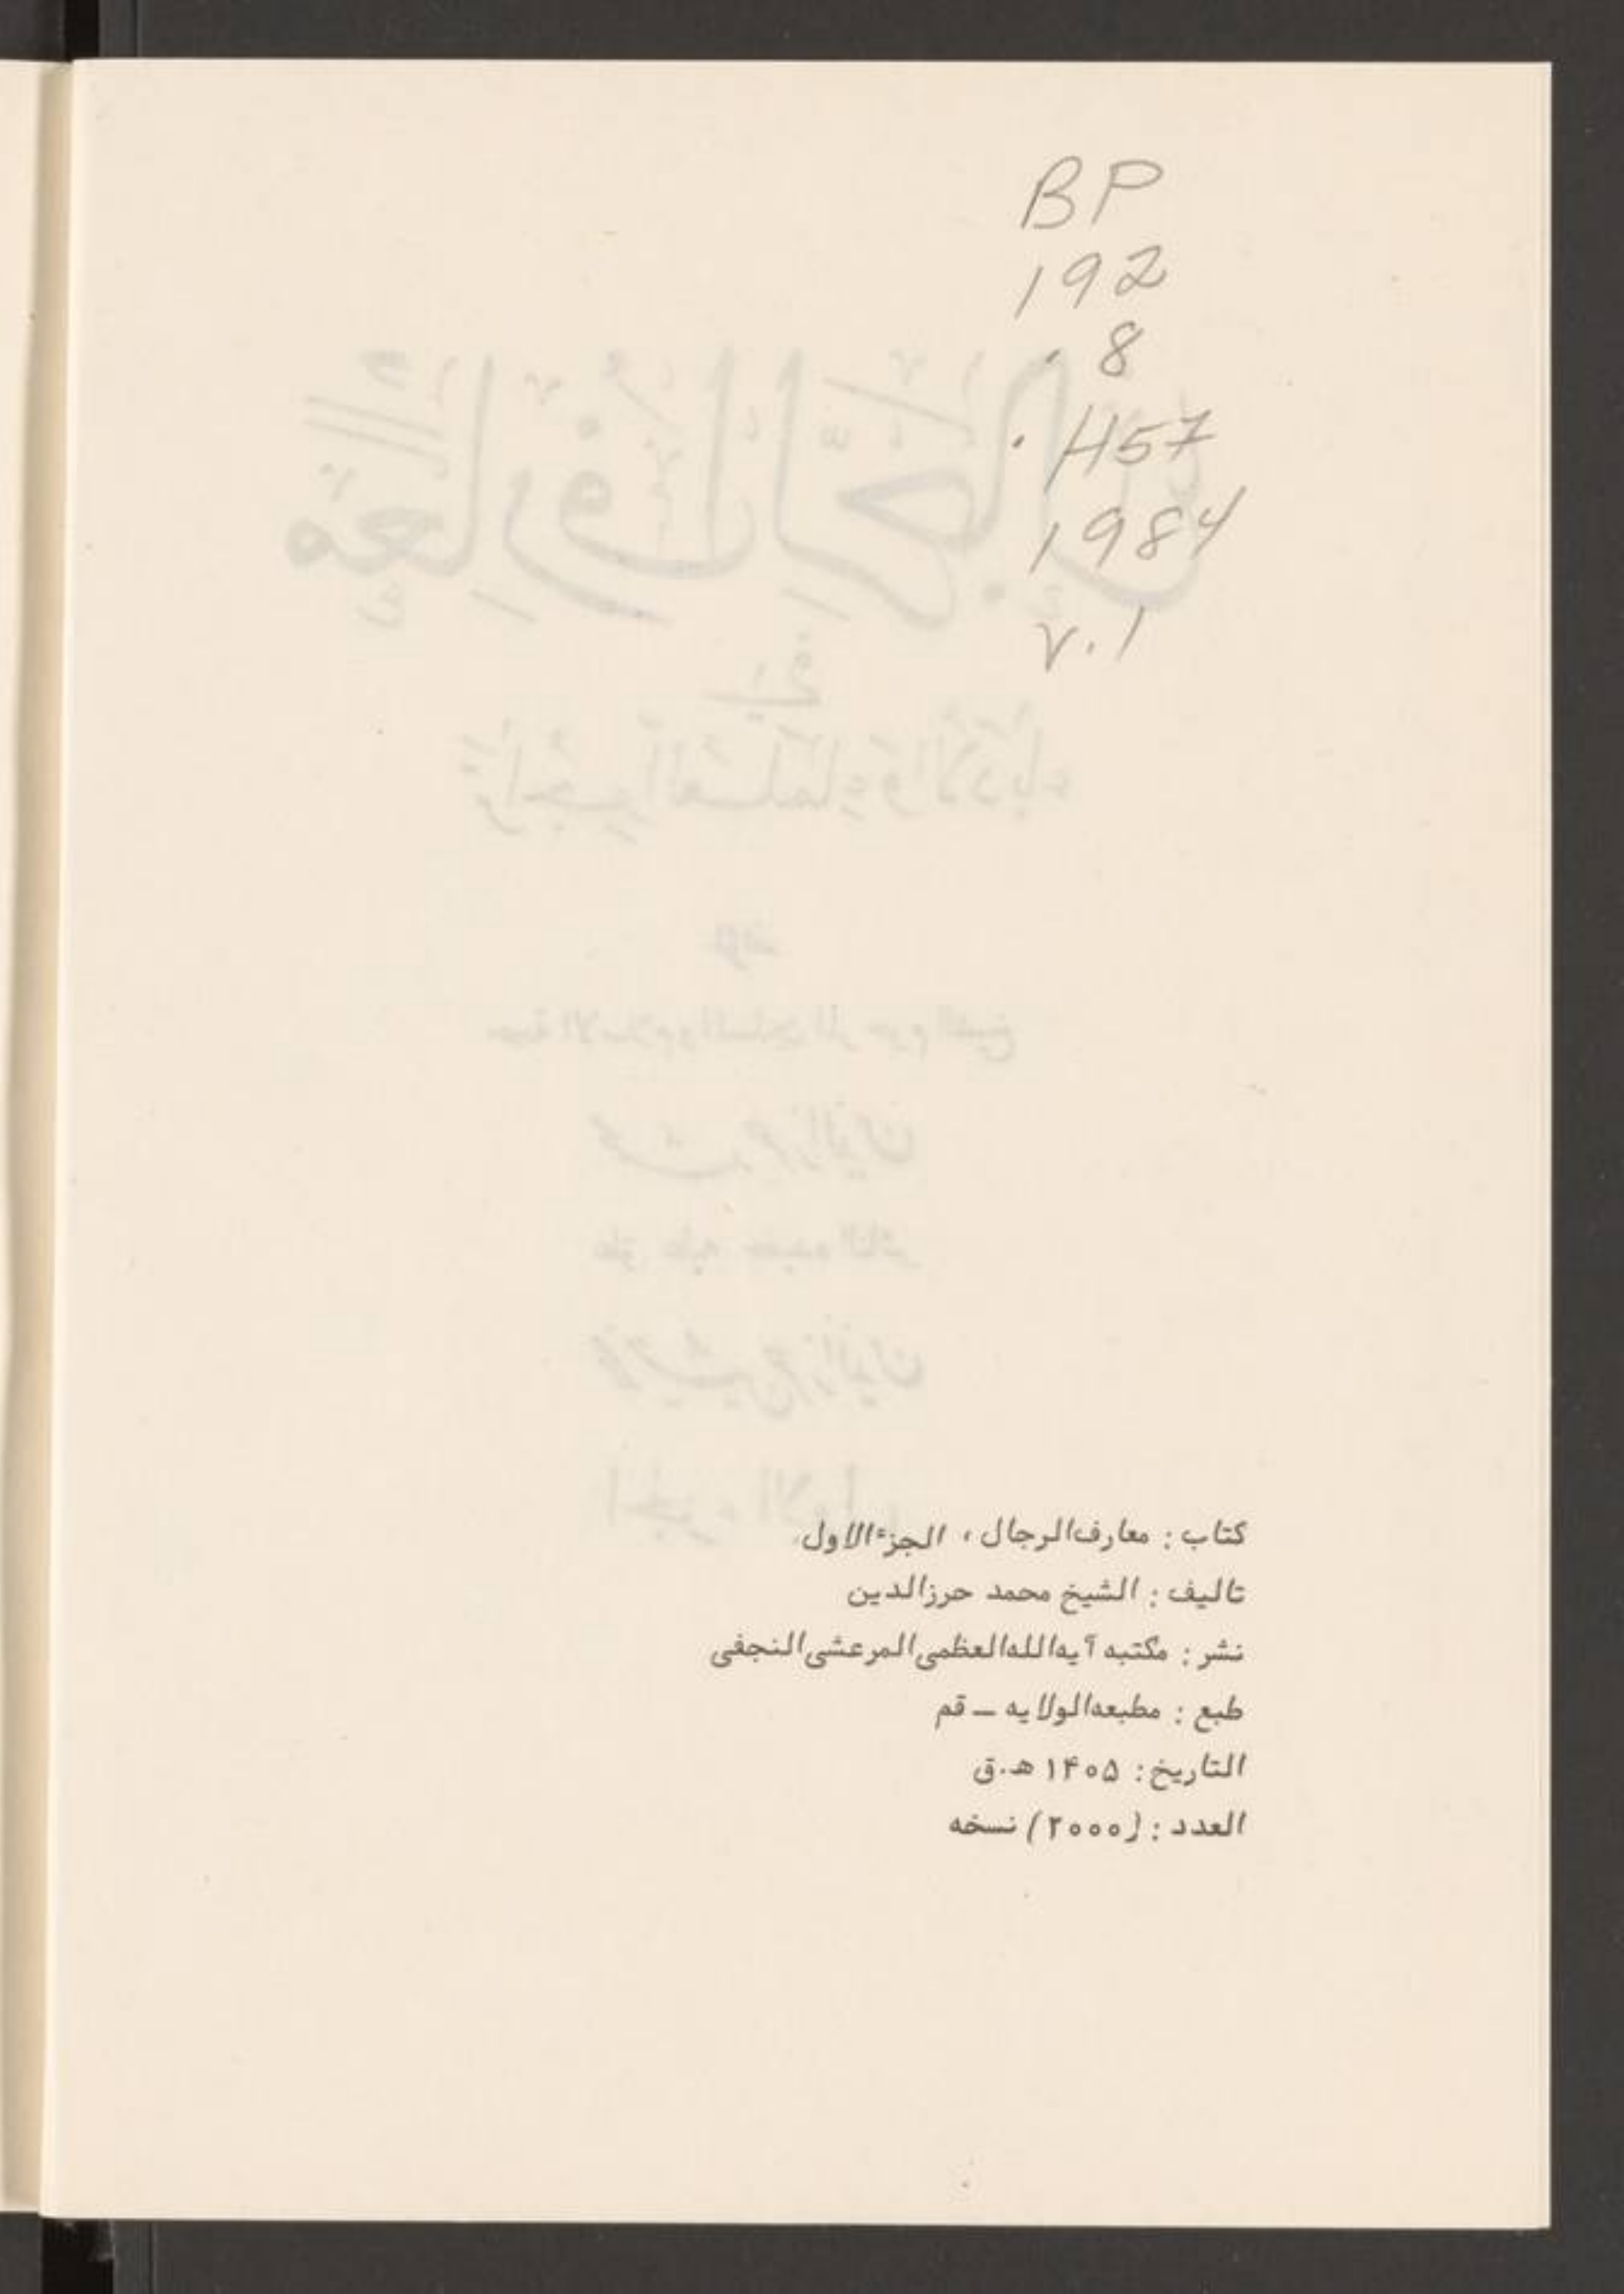 BP
192
.8
.H57
1984
v.1
كتاب : معارف‌الرجال ، الجزءالاول
تاليف : الشيخ محمد حرزالدين
نشر : مكتبه آيه‌الله‌العظمى‌المرعشى‌النجفى
طبع : مطبعه‌الولايه – قم
التاريخ : ۱۴۰۵ ه‍.ق
العدد : (۲۰۰۰) نسخه